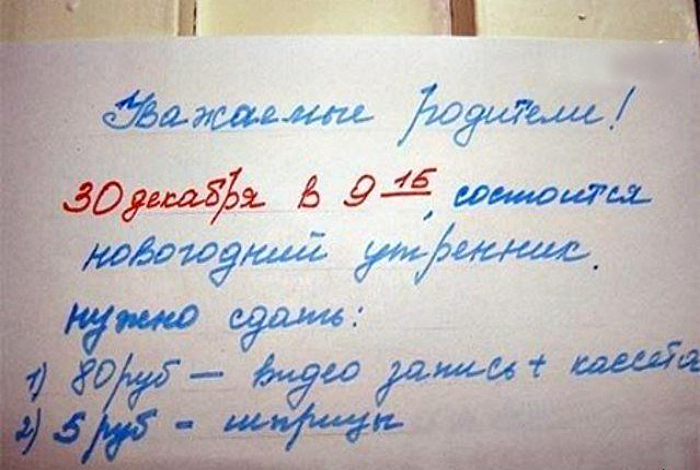 Уважаемые родители!
30 декабря в 9 15, состоится
новогодний утренник.
нужно сдать:
1) 80 руб — видео запись + кассета
2) 5 руб - шприцы